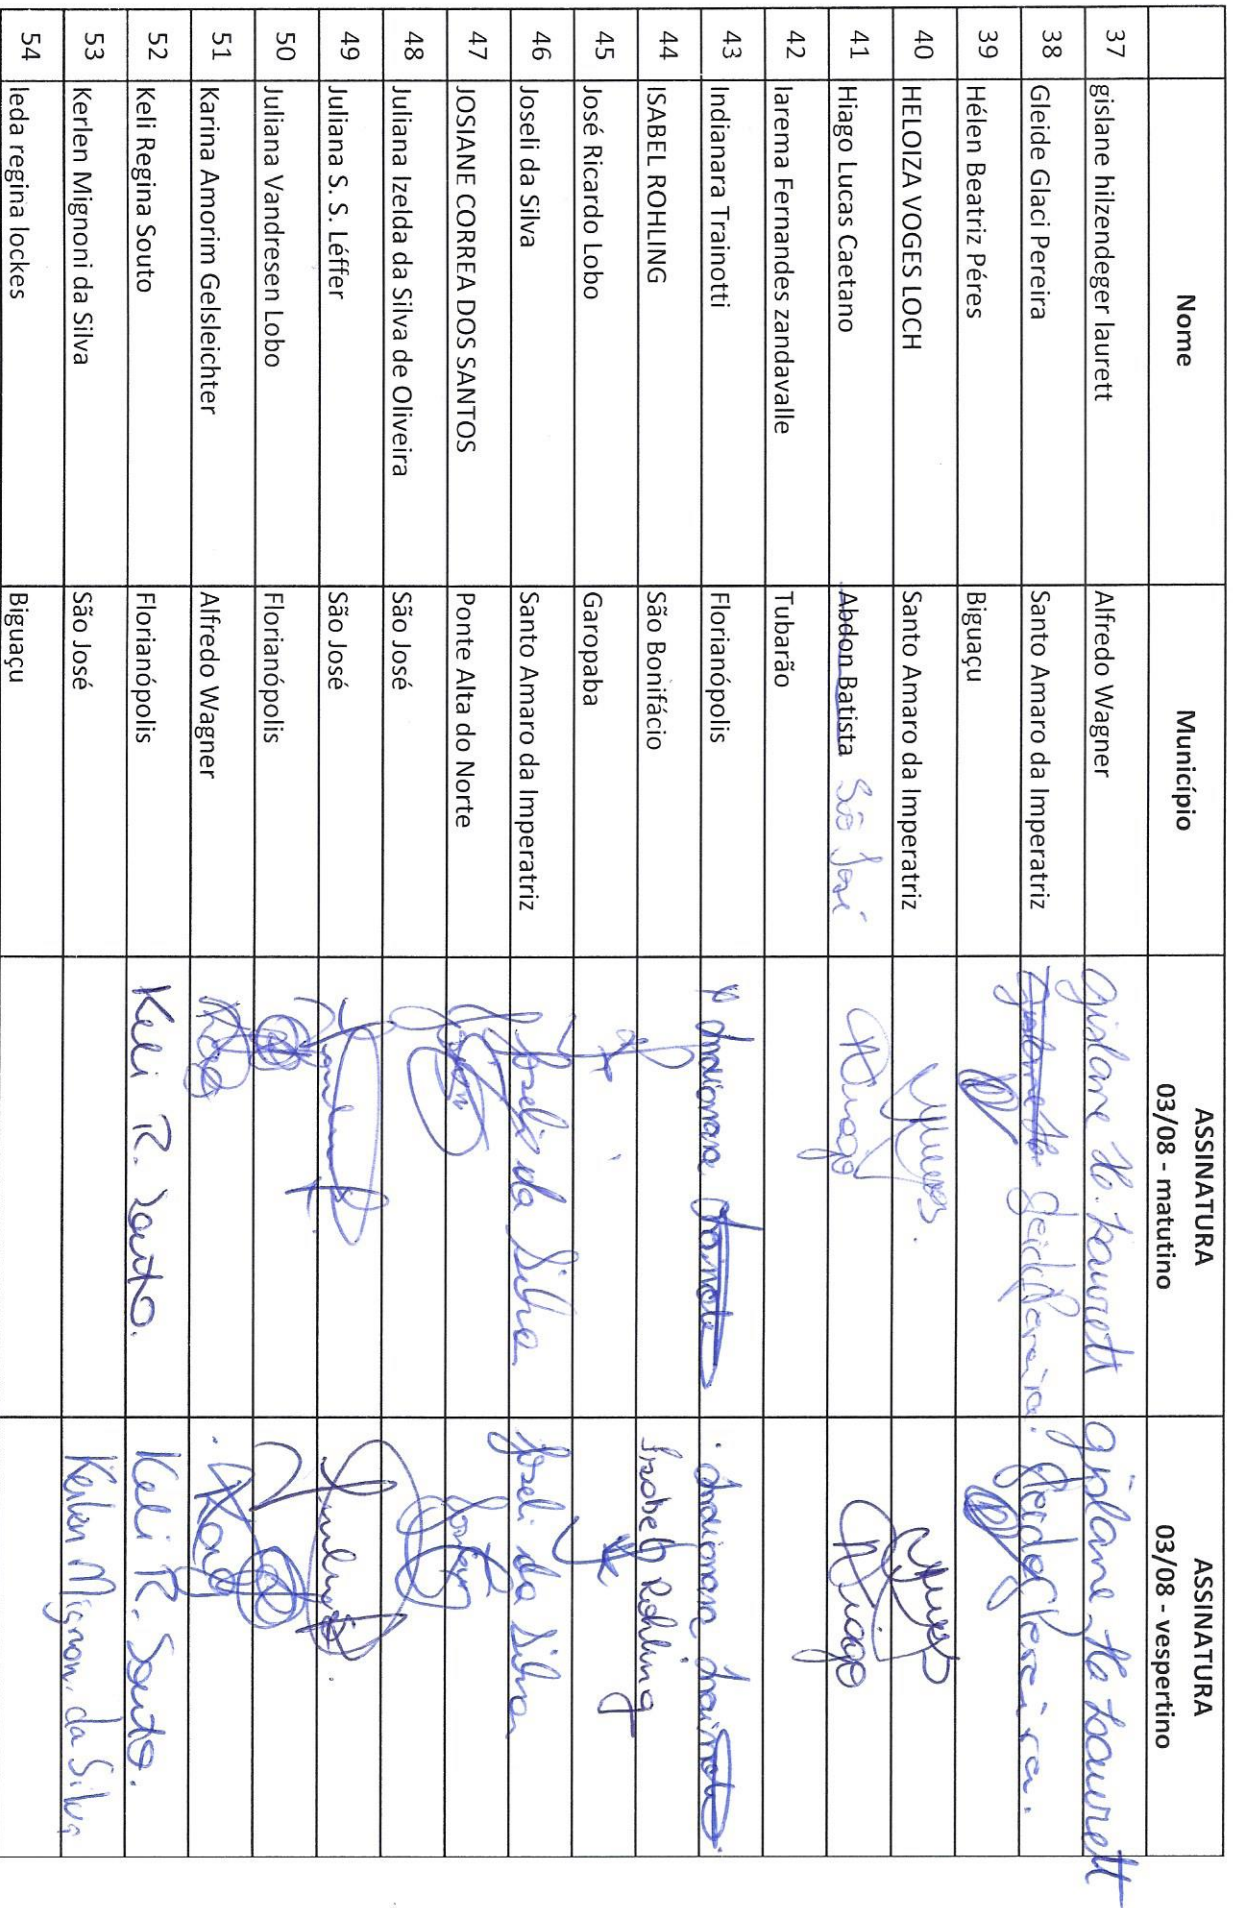 Nome Município ASSINATURA 03/08 - matutino ASSINATURA 03/08 - vespertino
37 gislane hilzendeger laurett Alfredo Wagner Gislane H. Laurett Gislane H. Laurett
38 Gleide Glaci Pereira Santo Amaro da Imperatriz Pereira Pereira.
39 Hélen Beatriz Péres Biguaçu
40 HELOIZA VOGES LOCH Santo Amaro da Imperatriz
41 Hiago Lucas Caetano Abdon Batista São José Hiago Hiago
42 Iarema Fernandes zandavalle Tubarão
43 Indianara Trainotti Florianópolis Indianara Indianara
44 ISABEL ROHLING São Bonifácio Isabel Rohling
45 José Ricardo Lobo Garopaba
46 Joseli da Silva Santo Amaro da Imperatriz Joseli da Silva Joseli da Silva
47 JOSIANE CORREA DOS SANTOS Ponte Alta do Norte
48 Juliana Izelda da Silva de Oliveira São José
49 Juliana S. S. Léffer São José
50 Juliana Vandresen Lobo Florianópolis
51 Karina Amorim Gelsleichter Alfredo Wagner
52 Keli Regina Souto Florianópolis Keli R. Souto. Keli R. Souto.
53 Kerlen Mignoni da Silva São José Kerlen Mignoni da Silva
54 leda regina lockes Biguaçu